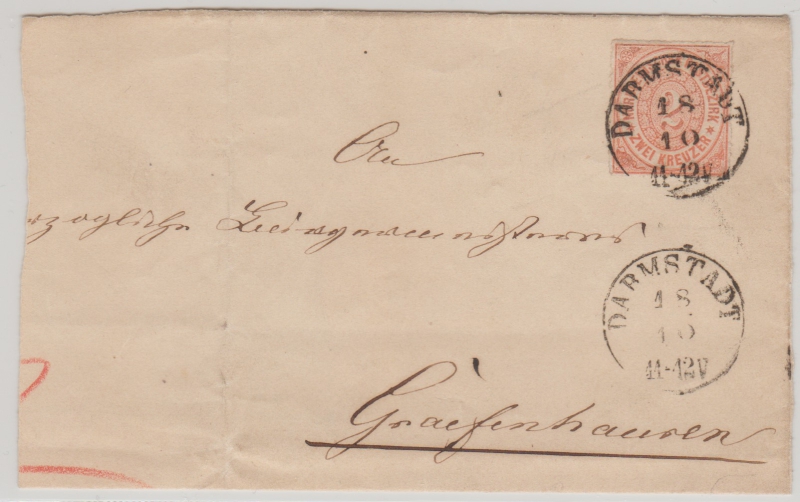 DARMSTADT
18
10
11-12V
ZWEI KREUZER
An
rzogliche Bürgermeisterei
DARMSTADT
18
10
11-12V
Graefenhausen